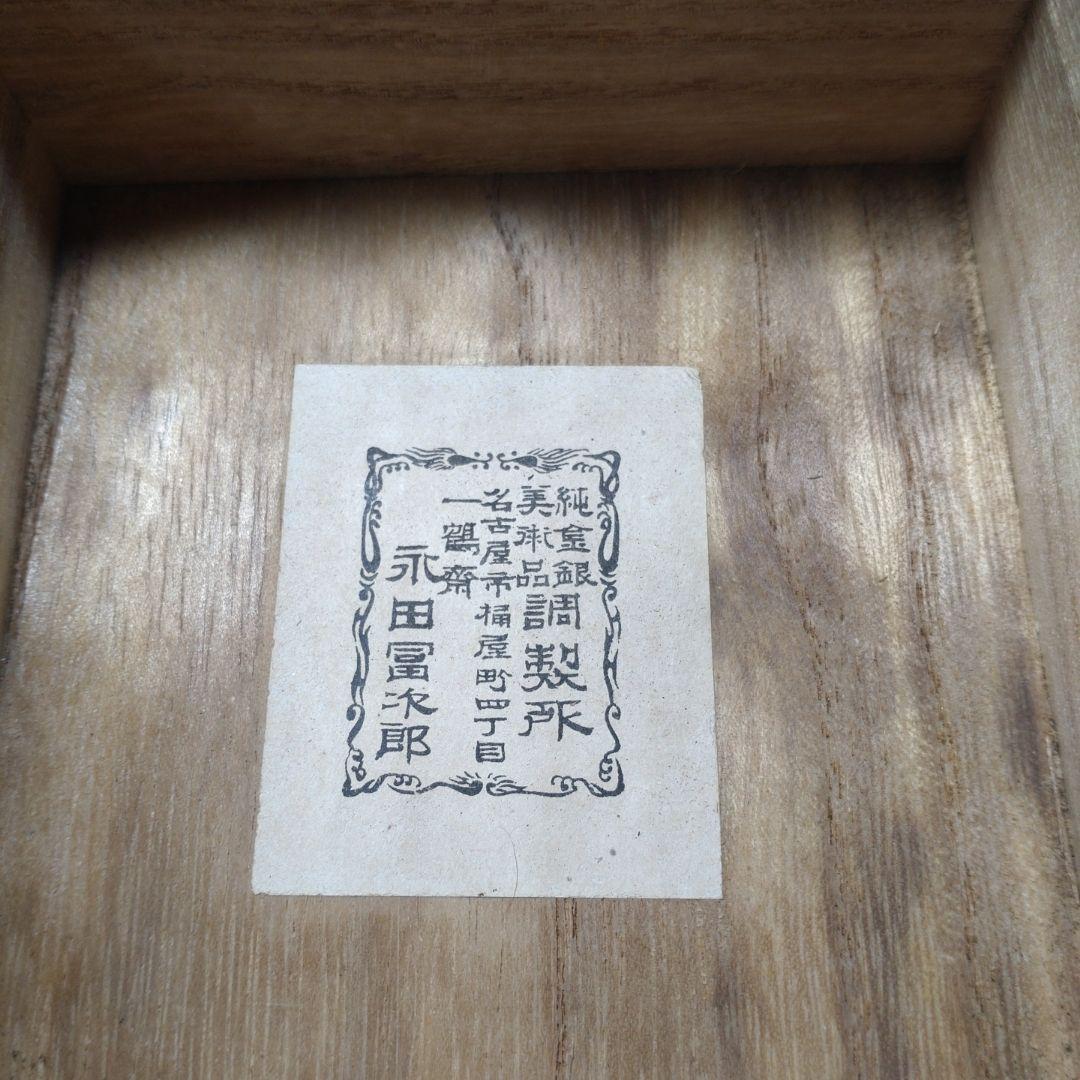 純金銀
美術品
調製所
名古屋市桶屋町四丁目
一鶴齋
永田冨次郎